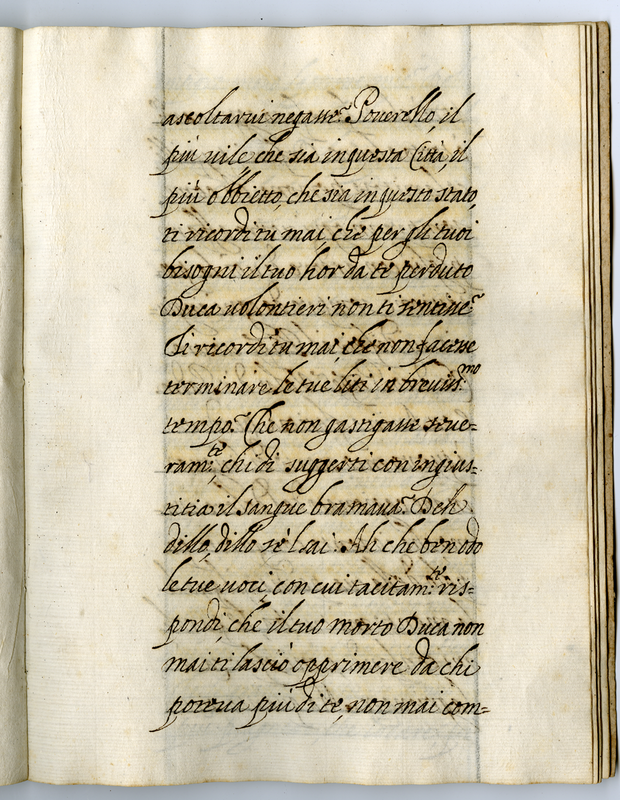 ascoltarui negasse? Pouerello, il
più uile che sia in questa Città, il
più obbietto, che sia in questo stato,
ti ricordi tu mai, che per gli tuoi
bisogni il tuo hor da te perduto
Duca uolontieri non ti sentisse?
Ti ricordi tu mai, che non facesse
terminare le tue liti in breuiss:mo
tempo? Che non gastigasse seue-
ram:te, chi di suggerti con ingius-
titia il sangue bramaua? Deh
dillo, dillo se 'l sai. Ah che ben odo
le tue uoci, con cui tacitam:te ris-
pondi, che il tuo morto Duca non
mai ti lasciò opprimere da chi
poteua più di te, non mai com-